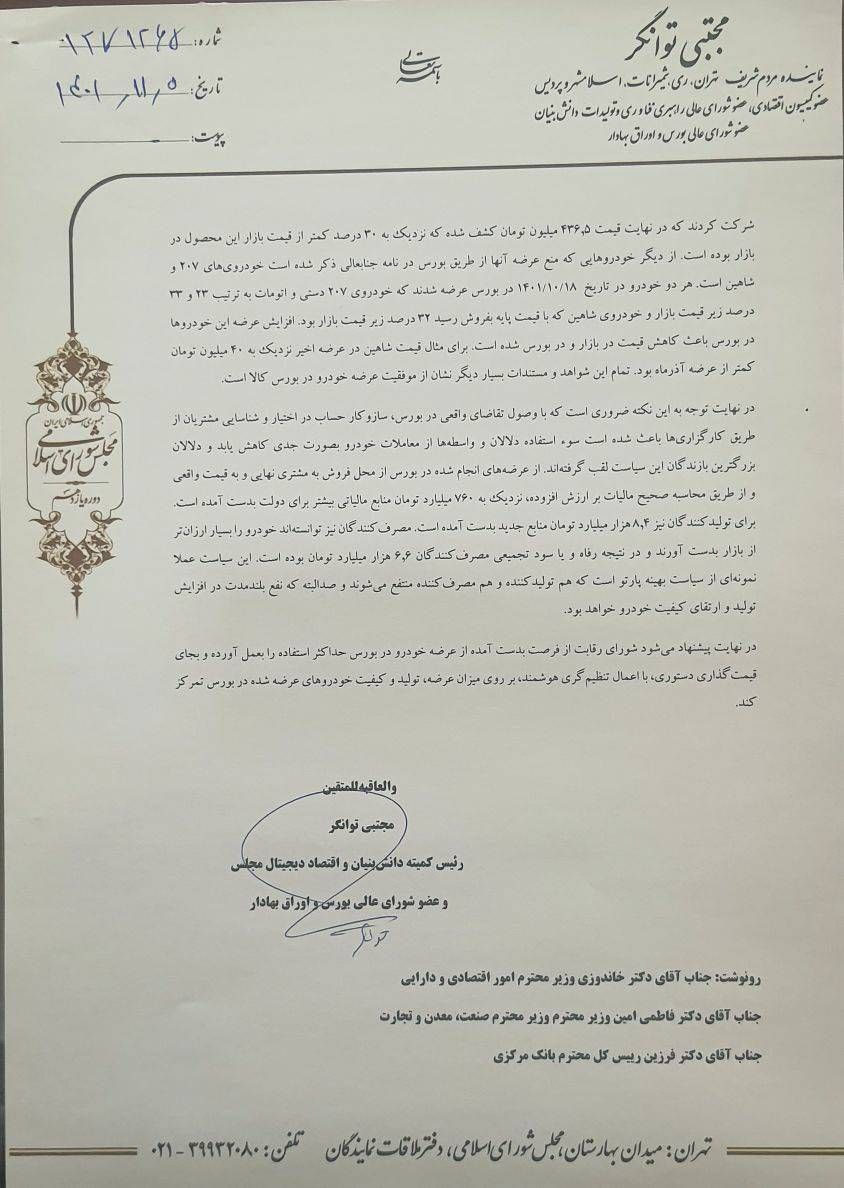 مجتبی توانگر
نماینده مردم شریف تهران، ری، شمیرانات، اسلامشهر و پردیس
عضو کمیسیون اقتصادی، عضو شورای عالی راهبری فناوری و تولیدات دانش بنیان
عضو شورای عالی بورس و اوراق بهادار
باسمه تعالی
شماره:
تاریخ: ۱۴۰۱/۱۱/۰۵
پیوست:
شرکت کردند که در نهایت قیمت ۴۳۶٫۵ میلیون تومان کشف شده که نزدیک به ۳۰ درصد کمتر از قیمت بازار این محصول در
بازار بوده است. از دیگر خودروهایی که منع عرضه آنها از طریق بورس در نامه جنابعالی ذکر شده است خودروی‌های ۲۰۷ و
شاهین است. هر دو خودرو در تاریخ ۱۴۰۱/۱۰/۱۸ در بورس عرضه شدند که خودروی ۲۰۷ دستی و اتومات به ترتیب ۲۳ و ۳۳
درصد زیر قیمت بازار و خودروی شاهین که با قیمت پایه بفروش رسید ۳۲ درصد زیر قیمت بازار بود. افزایش عرضه این خودروها
در بورس باعث کاهش قیمت در بازار و در بورس شده است. برای مثال قیمت شاهین در عرضه اخیر نزدیک به ۴۰ میلیون تومان
کمتر از عرضه آذرماه بود. تمام این شواهد و مستندات بسیار دیگر نشان از موفقیت عرضه خودرو در بورس کالا است.
در نهایت توجه به این نکته ضروری است که با وصول تقاضای واقعی در بورس، سازوکار حساب در اختیار و شناسایی مشتریان از
طریق کارگزاری‌ها باعث شده است سوء استفاده دلالان و واسطه‌ها از معاملات خودرو بصورت جدی کاهش یابد و دلالان
بزرگترین بازندگان این سیاست لقب گرفته‌اند. از عرضه‌های انجام شده در بورس از محل فروش به مشتری نهایی و به قیمت واقعی
و از طریق محاسبه صحیح مالیات بر ارزش افزوده، نزدیک به ۷۶۰ میلیارد تومان منابع مالیاتی بیشتر برای دولت بدست آمده است.
برای تولیدکنندگان نیز ۸٫۴ هزار میلیارد تومان منابع جدید بدست آمده است. مصرف‌کنندگان نیز توانسته‌اند خودرو را بسیار ارزان‌تر
از بازار بدست آورند و در نتیجه رفاه و یا سود تجمیعی مصرف‌کنندگان ۶٫۶ هزار میلیارد تومان بوده است. این سیاست عملا
نمونه‌ای از سیاست بهینه پارتو است که هم تولیدکننده و هم مصرف‌کننده منتفع می‌شوند و صدالبته که نفع بلندمدت در افزایش
تولید و ارتقای کیفیت خودرو خواهد بود.
در نهایت پیشنهاد می‌شود شورای رقابت از فرصت بدست آمده از عرضه خودرو در بورس حداکثر استفاده را بعمل آورده و بجای
قیمت‌گذاری دستوری، با اعمال تنظیم‌گری هوشمند، بر روی میزان عرضه، تولید و کیفیت خودروهای عرضه شده در بورس تمرکز
کند.
جمهوری اسلامی ایران
مجلس شورای اسلامی
دوره یازدهم
والعاقبه للمتقین
مجتبی توانگر
رئیس کمیته دانش بنیان و اقتصاد دیجیتال مجلس
و عضو شورای عالی بورس و اوراق بهادار
رونوشت: جناب آقای دکتر خاندوزی وزیر محترم امور اقتصادی و دارایی
جناب آقای دکتر فاطمی امین وزیر محترم وزیر محترم صنعت، معدن و تجارت
جناب آقای دکتر فرزین رییس کل محترم بانک مرکزی
تهران: میدان بهارستان، مجلس شورای اسلامی، دفتر ملاقات نمایندگان تلفن: ۳۹۹۳۲۰۸۰ - ۰۲۱